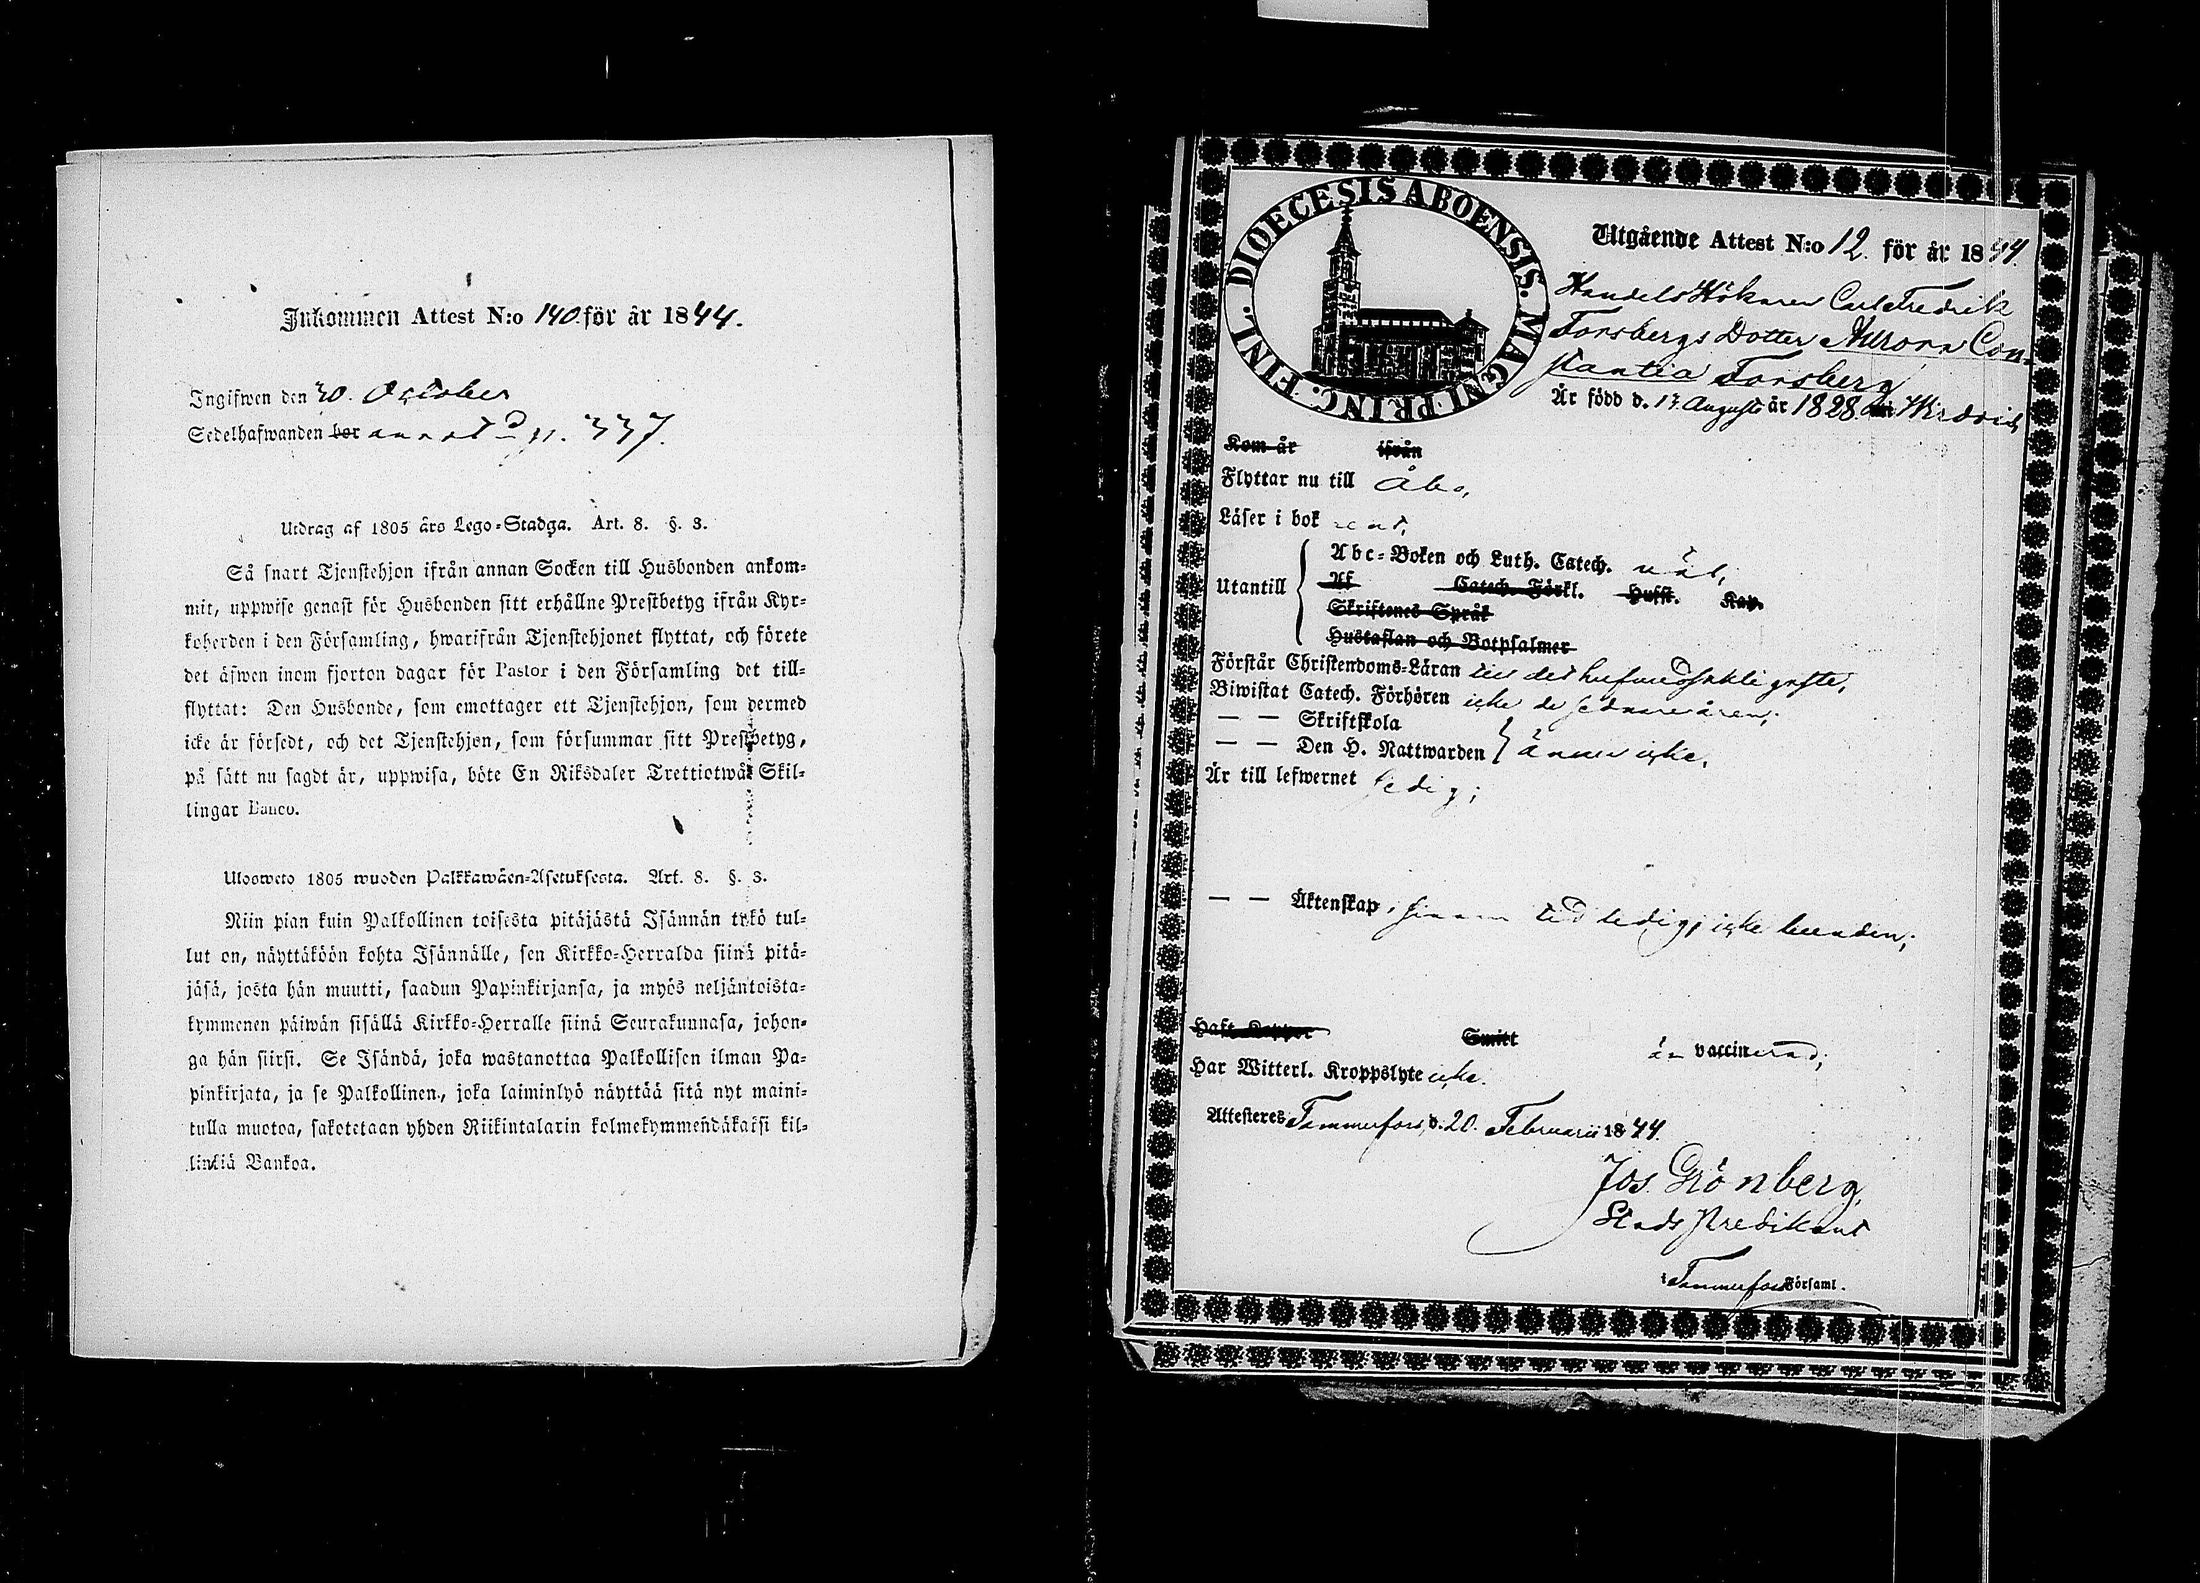 Inkommen Attest N:o 140. för år 1844.
Ingifwen den 30. October
Sedelhafwanden bor annot. p. 337.
Utdrag af 1805 års Lego=Stadga. Art. 8. §. 3.
Så snart Tjenstehjon ifrån annan Socken till Husbonden ankom=
mit, uppwise genast för Husbonden sitt erhållne Prestbetyg ifrån Kyr=
koherden i den Församling, hwarifrån Tjenstehjonet flyttat, och förete
det äfwen inom fjorton dagar för Pastor i den Församling det till=
flyttat: Den Husbonde, som emottager ett Tjenstehjon, som dermed
icke är försedt, och det Tjenstehjon, som försummar sitt Prestbetyg,
på sätt nu sagdt är, uppwisa, böte En Riksdaler Trettiotwå Skil=
lingar Banco.
Ulosweto 1805 wuoden Palkkawäen=Asetuksesta. Art. 8. §. 3.
Niin pian kuin Palkollinen toisesta pitäjästä Isännän tykö tul=
lut on, näyttäköön kohta Isännälle, sen Kirkko=Herralda siinä pitä=
jäsä, josta hän muutti, saadun Papinkirjansa, ja myös neljäntoista=
kymmenen päiwän sisällä Kirkko=Herralle siinä Seurakunnasa, johon=
ga hän siirsi. Se Isändä, joka wastanottaa Palkollisen ilman Pa=
pinkirjata, ja se Palkollinen, joka laiminlyö näyttää sitä nyt maini=
tulla muotoa, sakotetaan yhden Riikintalarin kolmekymmendäkaksi kil=
linkiä Bankoa.
DIOECESIS ABOENSIS. MAGNI PRINC. FINL.
Utgående Attest N:o 12. för år 1844.
Handels Hökaren Carl Fredrik
Forsbergs Dotter Aurora Con=
stantia Forsberg
Är född d. 13 Augusti år 1828. i Wirdois
Kom år ifrån
Flyttar nu till Åbo,
Läser i bok rent,
Utantill
Abc=Boken och Luth. Catech. väl,
Af Catech. Förkl. Hufst. Kap.
Skriftenes Språk
Hustaflan och Botpsalmer
Förstår Christendoms=Läran till det hufvudsakligaste,
Biwistat Catech. Förhören icke de sednare åren;
— — Skriftskola
— — Den H. Nattwarden ännu icke.
Är till lefwernet sedig;
— — Äktenskap, ledig, icke bunden;
Haft Koppor Smitt är vaccinerad;
Har Witterl. Kroppslyte icke.
Attesteres Tammerfors, d. 20. Februarii 1844.
Jos. Grönberg,
Stads Predikant
i Tammerfors Församl.